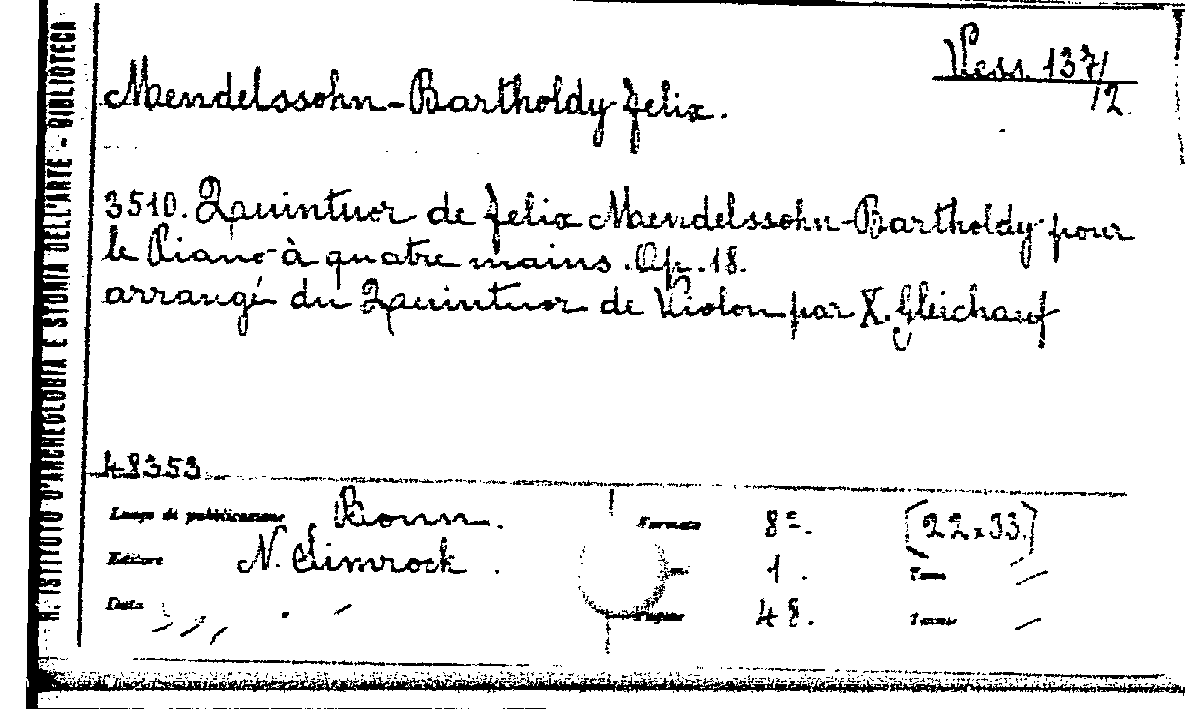 R. ISTITUTO D'ARCHEOLOGIA E STORIA DELL'ARTE - BIBLIOTECA
Vess. 137/
/2
Mendelssohn-Bartholdy Felix.
3510. Quintuor de Felix Mendelssohn-Bartholdy pour
le Piano à quatre mains. Op. 18.
arrangé du Quintuor de Violon par X. Gleichauf
48353
Luogo di pubblicazione Bonn. Formato 8º. [22x33.]
Editore N. Simrock. 1. Tomo
Data Pagine 48.